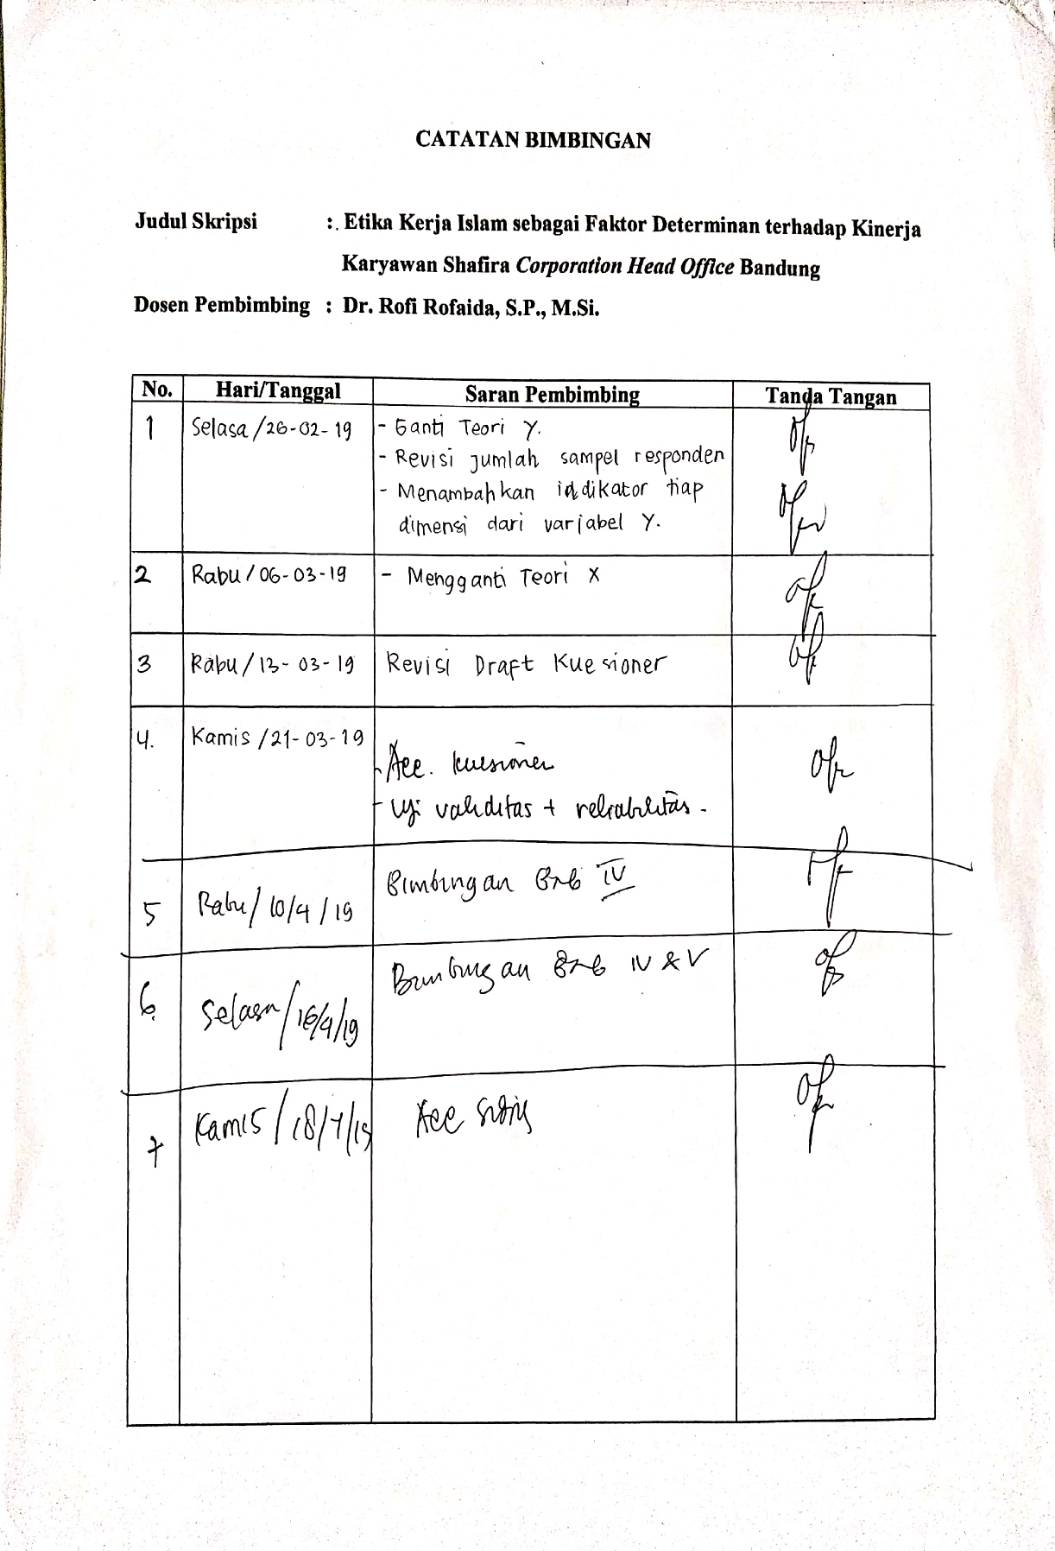 CATATAN BIMBINGAN
Judul Skripsi : . Etika Kerja Islam sebagai Faktor Determinan terhadap Kinerja
Karyawan Shafira Corporation Head Office Bandung
Dosen Pembimbing : Dr. Rofi Rofaida, S.P., M.Si.
No. Hari/Tanggal Saran Pembimbing Tanda Tangan
1 Selasa /26-02-19 - Ganti Teori Y.
- Revisi jumlah sampel responden
- Menambahkan iddikator tiap
dimensi dari variabel Y.
2 Rabu / 06-03-19 - Mengganti Teori X
3 Rabu / 13-03-19 Revisi Draft Kuesioner
4. Kamis /21-03-19
- Acc. kuesioner
- Uji validitas + reliabilitas -
5 Rabu / 10/4 / 19 Bimbingan Bab IV
6. Selasa / 16/4/19 Bimbingan Bab IV & V
7 Kamis / 18/4/19 Acc sidang